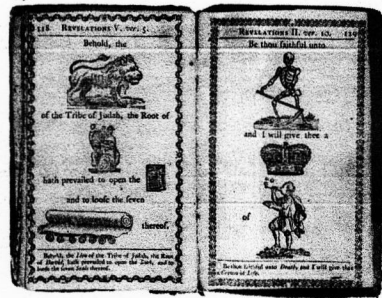 118 REVELATIONS V. ver. 5.
Behold, the
of the Tribe of Judah, the Root of
hath prevailed to open the
and to loose the seven
thereof.
Behold, the Lion of the Tribe of Judah, the Root
of David, hath prevailed to open the Book, and to
loose the seven Seals thereof.
REVELATIONS II. ver. 10. 119
Be thou faithful unto
and I will give thee a
of
Be thou faithful unto Death, and I will give thee
a Crown of Life.